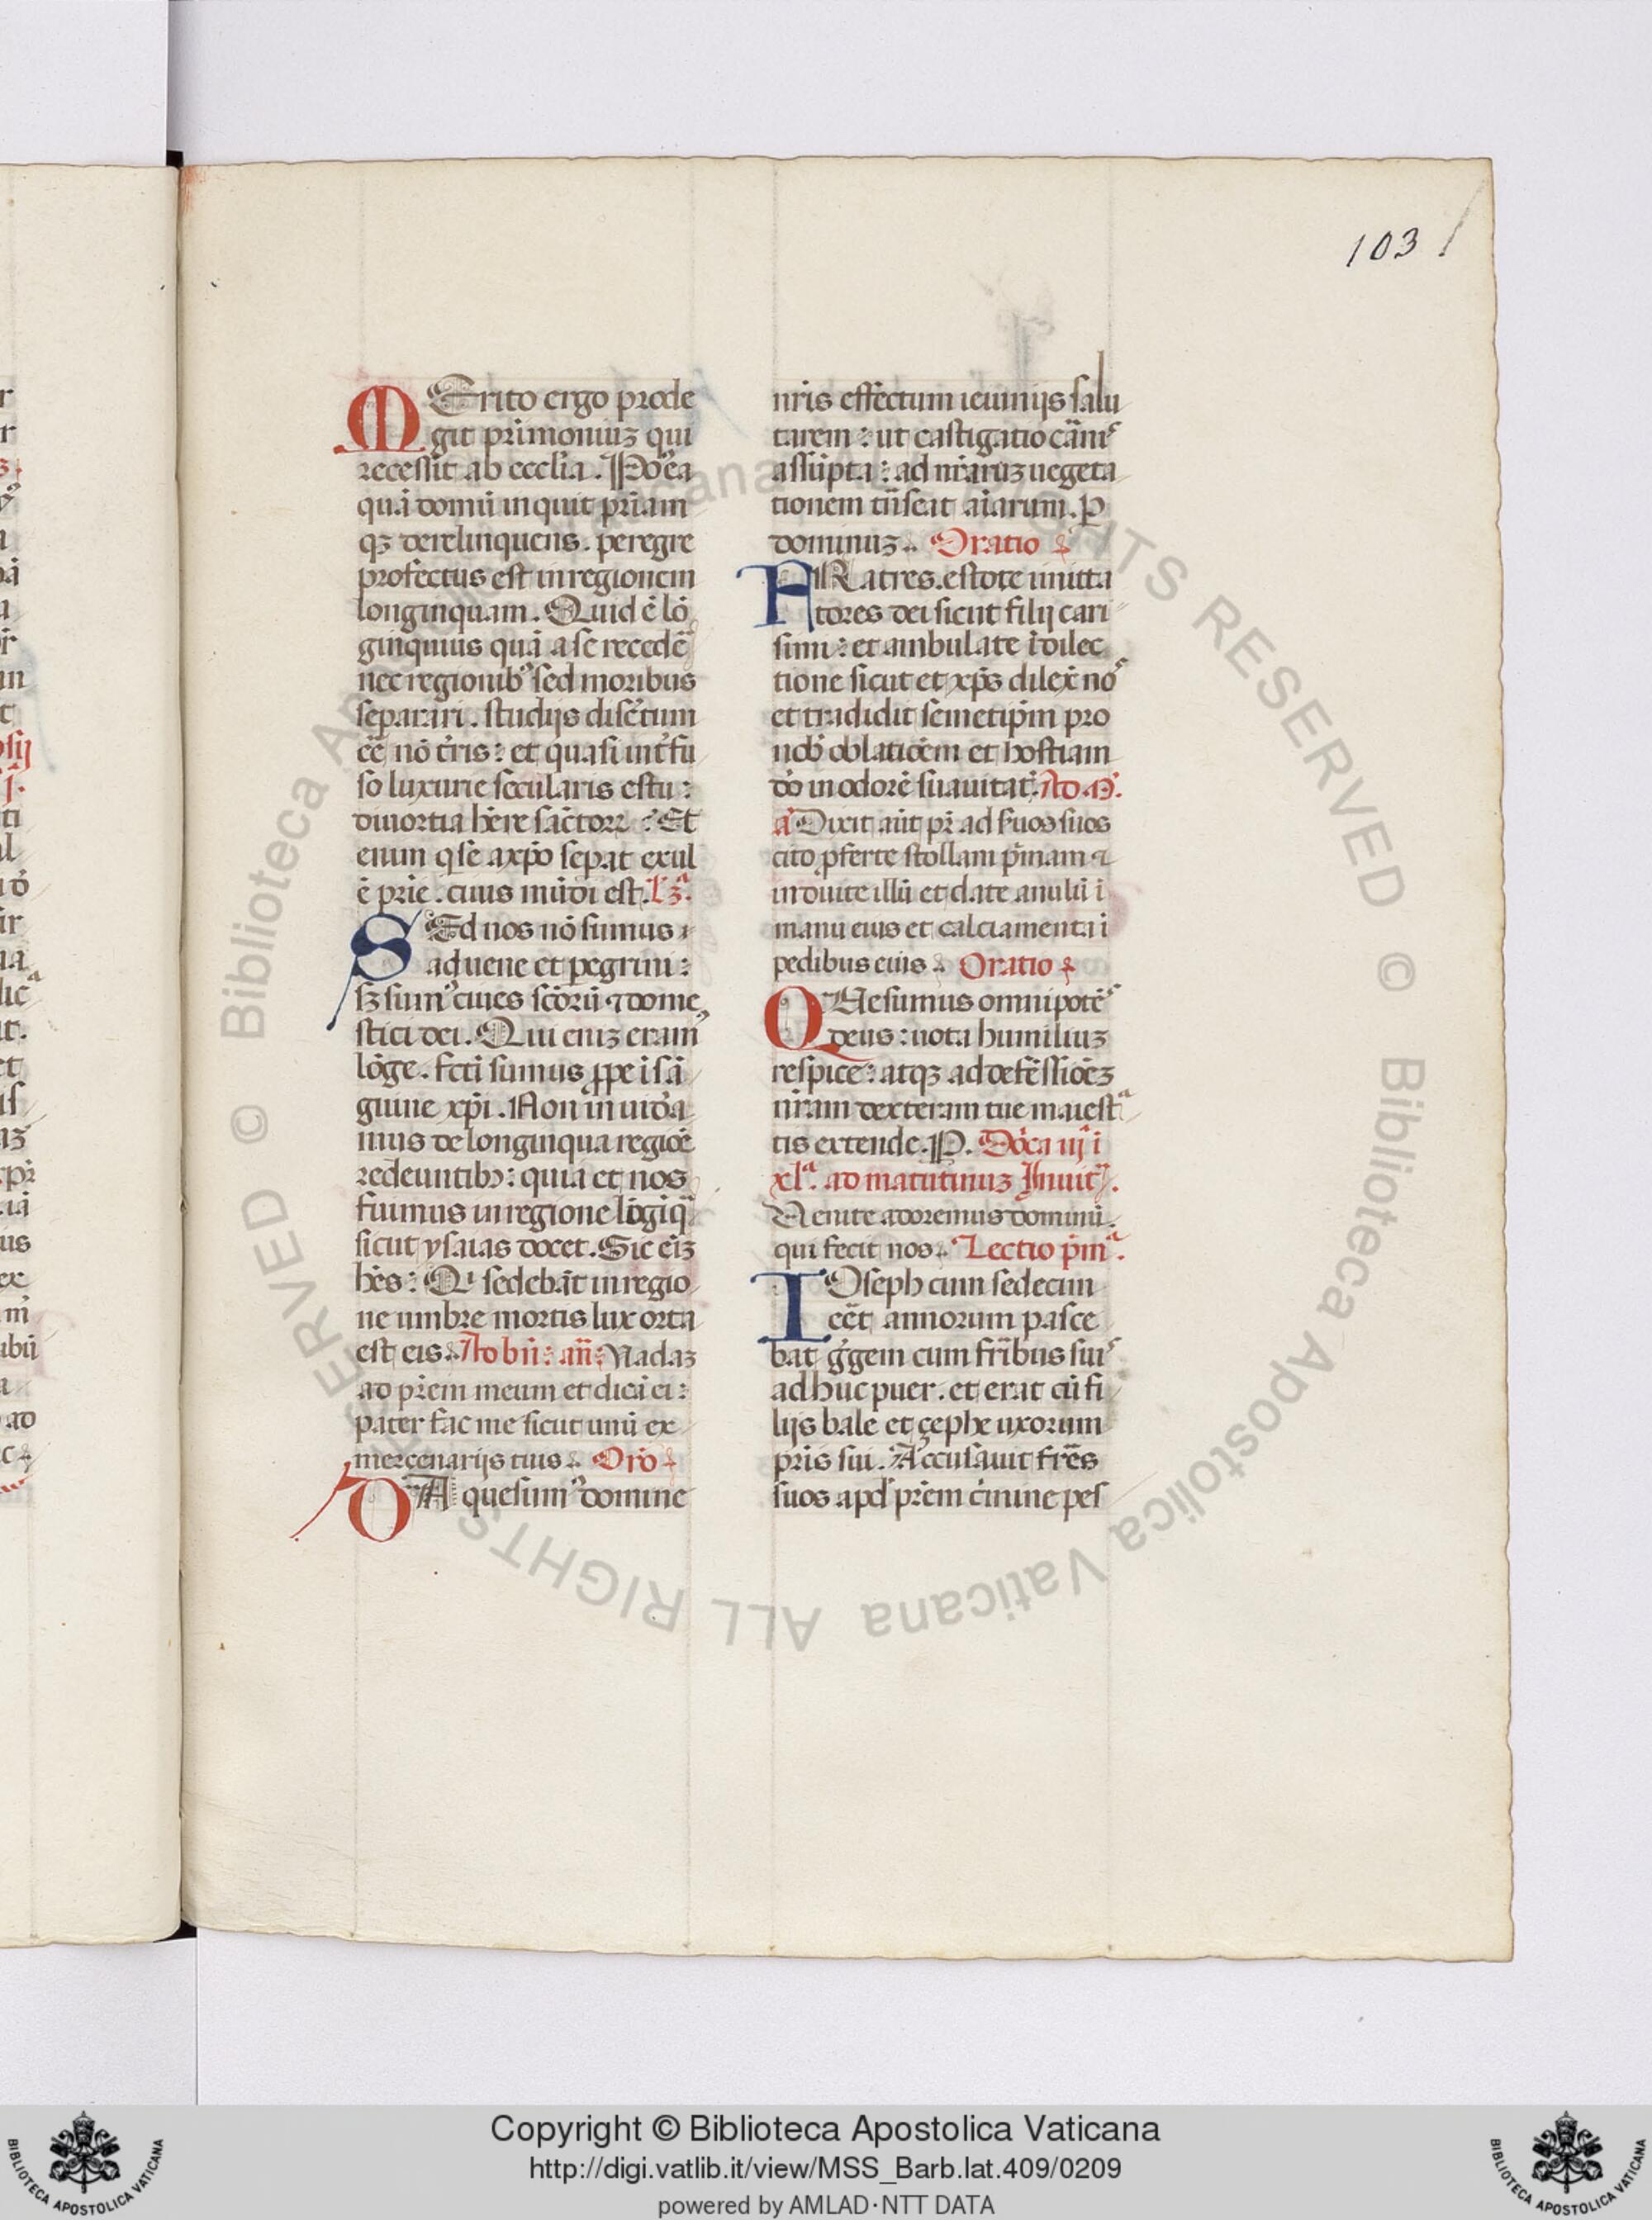 103
MErito ergo prode
git pr̄imoniuꝫ qui
recessit ab ecclīa. Po᷒ea
quā domū inquit pr̄iam
qꝫ derelinquens. peregre
profectus est in regionem
longinquam. Quid ē lō
ginquius quā a se recedē
nec regionibꝰ sed moribus
separari. studijs discr̄tum
eē nō tr̄ris: et quasi int̄fu
so luxurie secularis estu:
diuortia hēre sāctorꝝ: Et
enim q se a xp̄o sepat exul
ē pr̄ie. ciuis mūdi est. Lꝫª.
SEd nos nō sumus
aduene et pegrini:
sꝫ sumꝰ ciues scōrū ⁊ dome
stici dei. Qui eniꝫ eramꝰ
lōge. fcti sumus ꝓpe i sā
guine xp̄i. Non inuidea
mus de longinqua regiōe
redeuntibꝰ: quia et nos
fuimus in regione lōgīqª
sicut ysaias docet. Sic eīꝫ
hēs: Qⁱ sedebāt in regio
ne umbre mortis lux orta
est eis. Ad bn̄: an̄: Uadaꝫ
ad pr̄em meum et dicā ei:
pater fac me sicut unū ex
mercenarijs tuis. Orō
DA quesumꝰ domine
nr̄is effectum ieiunijs salu
tarem: ut castigatio carnıˢ
assūpta: ad nr̄aruꝫ uegeta
tionem trāseat aīarum. P
dominuꝫ. Oratio
FRatres. estote imita
tores dei sicut filij cari
simi: et ambulate ī dilec
tione sicut et xp̄s dilexᵗ noˢ
et tradidit semetip̄m pro
nob̄ oblatiōem et hostiam
dō in odorē suauitatᵉ. Ad M̄.
a᷒ Dixit aūt pr̄ ad s̄uos suos
cito ꝓferte stollam p̄mam ⁊
induite illū et date anulū ī
manu eius et calciamenta ī
pedibus eius. Oratio
QUesumus omnipotēˢ
deus: uota humiliuꝫ
respice: atqꝫ ad defēssiōeꝫ
nr̄am dexteram tue maiestª
tis extende. P. Dōca iij ī
xlª. ad matutinuꝫ Inuit᷑.
Uenite adoremus dominū.
qui fecit nos. Lectio p̄mª.
IOseph cum sedecim
eēt annorum pasce
bat g̓gem cum fr̄ibus suiˢ
adhuc puer. et erat cū fi
lijs bale et çephe uxorum
pr̄is sui. Accusauit fr̄es
suos apd̓ pr̄em c̓mine pes
© Biblioteca Apostolica Vaticana ALL RIGHTS RESERVED © Biblioteca Apostolica Vaticana ALL RIGHTS RESERVED
Copyright © Biblioteca Apostolica Vaticana
http://digi.vatlib.it/view/MSS_Barb.lat.409/0209
powered by AMLAD·NTT DATA
BIBLIOTECA APOSTOLICA VATICANA
BIBLIOTECA APOSTOLICA VATICANA